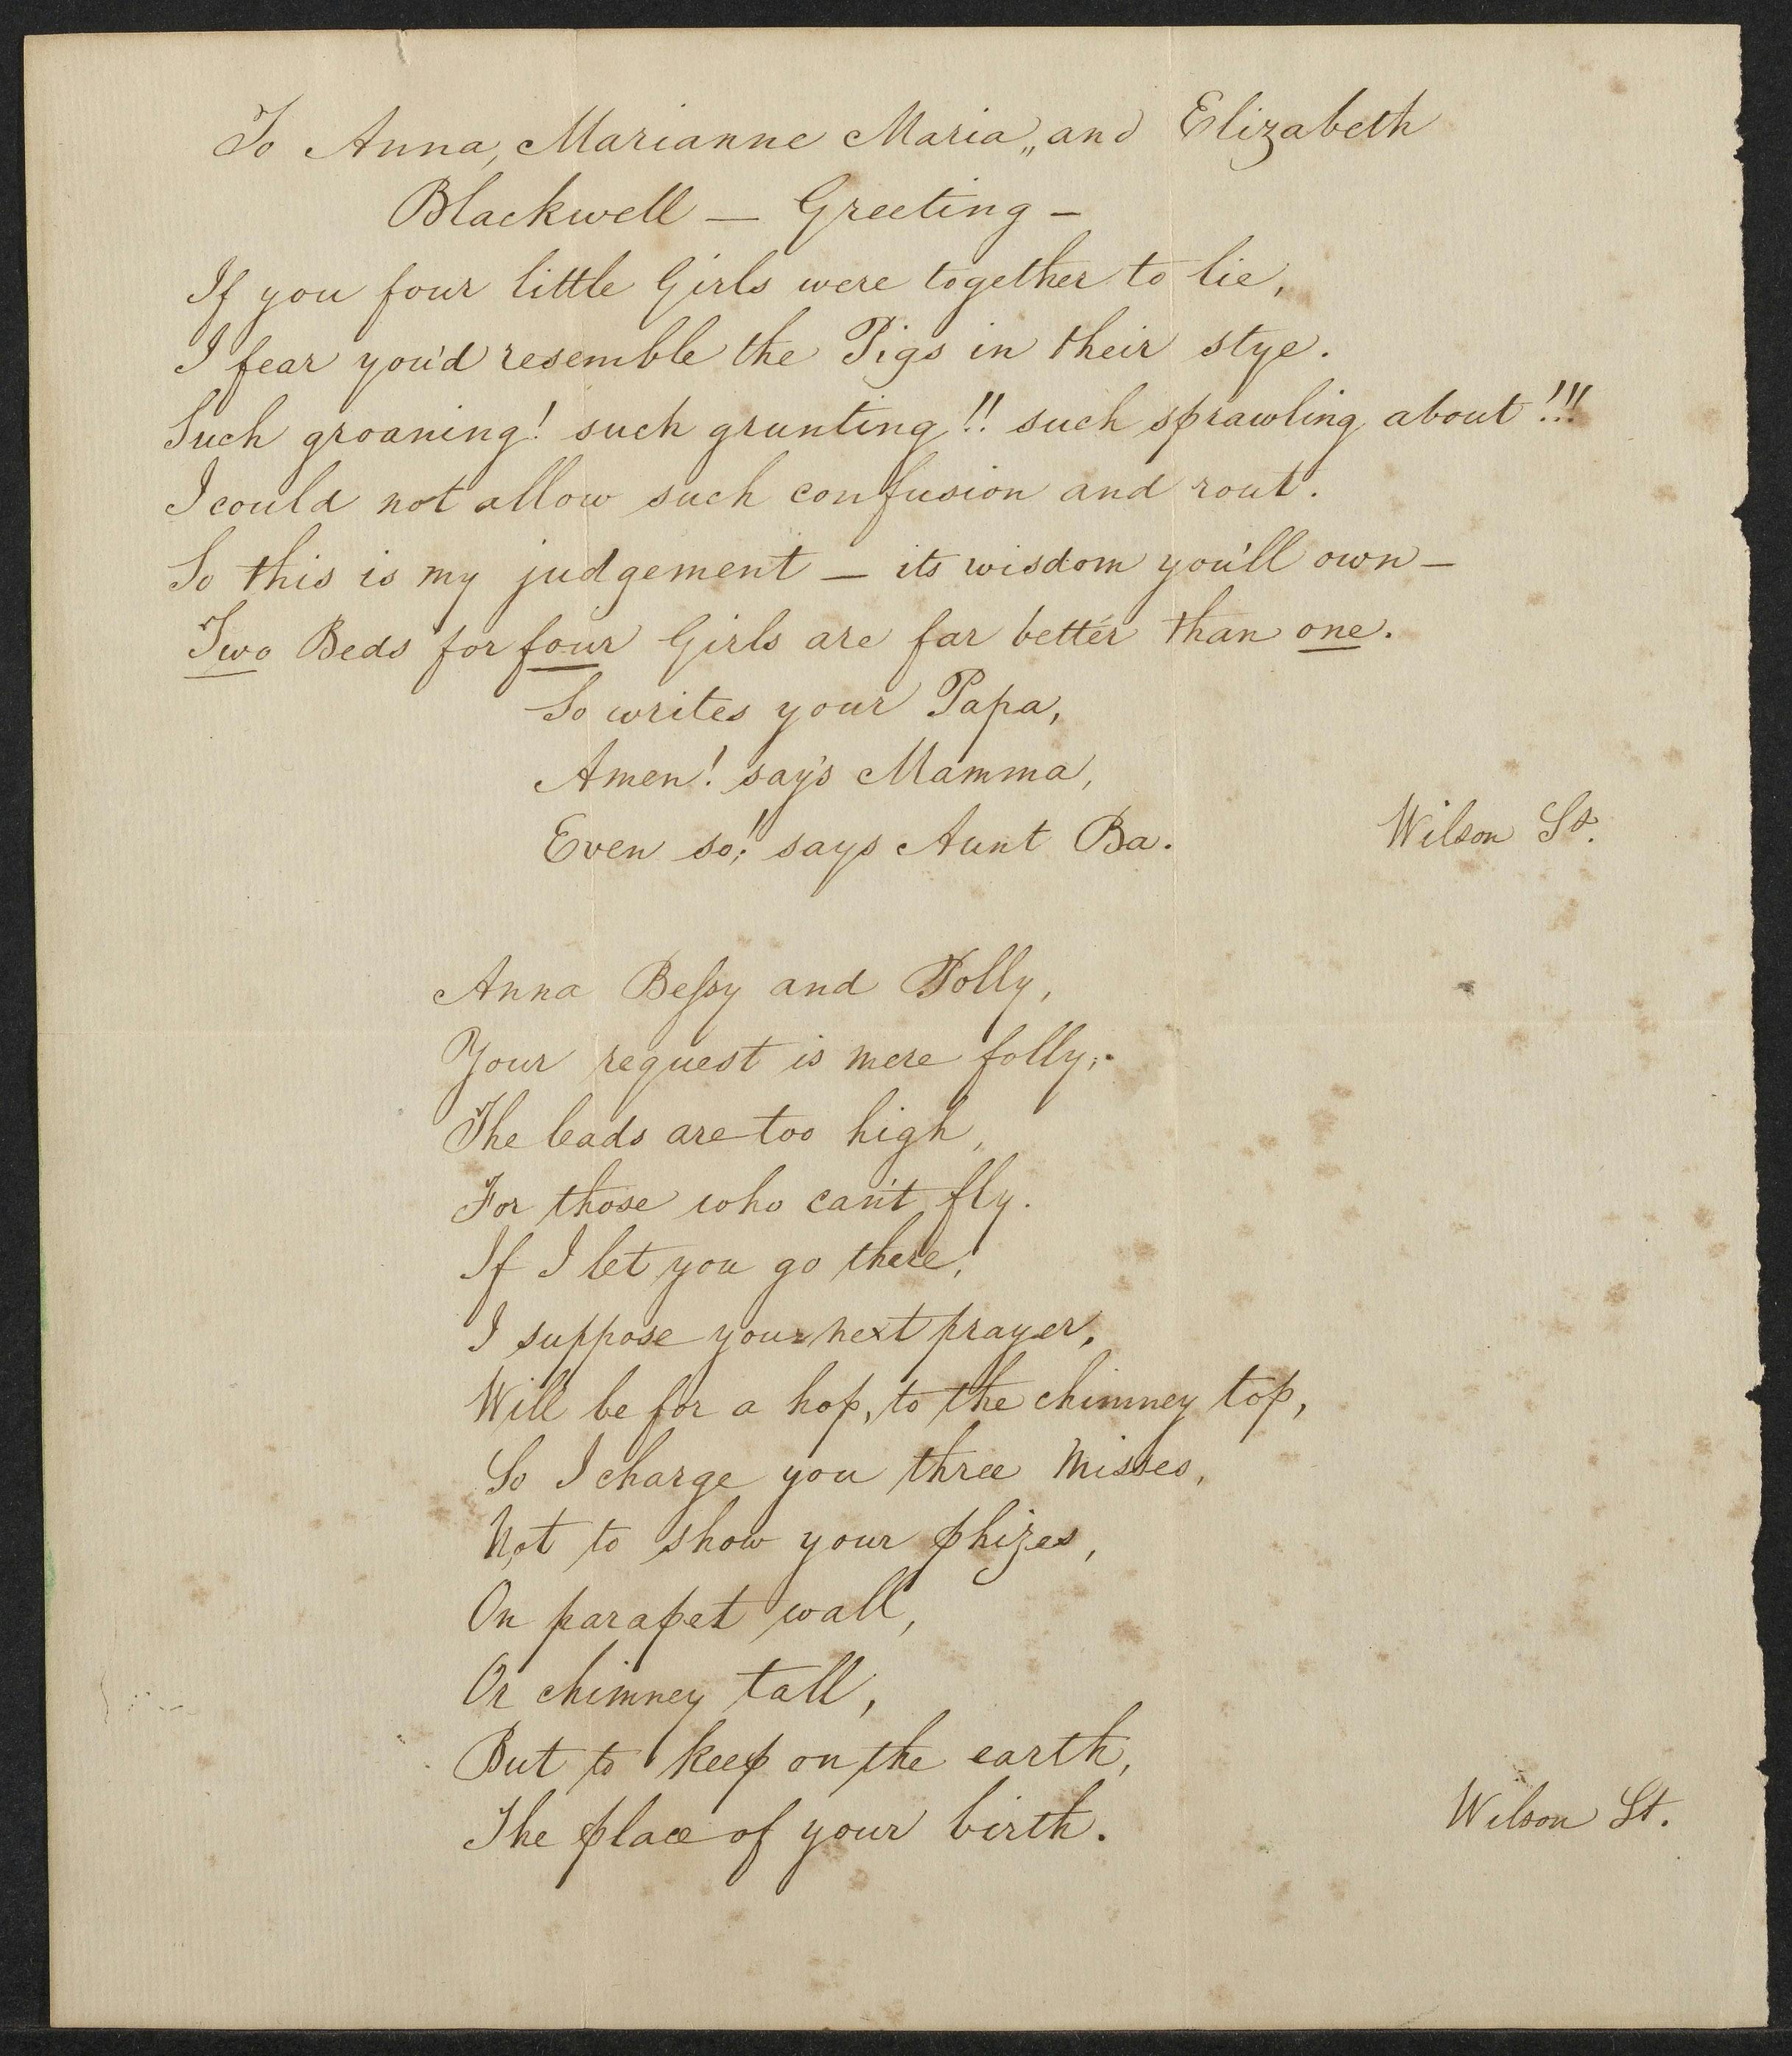 To Anna, Marianne Maria,, and Elizabeth
Blackwell — Greeting –
If you four little Girls were together to lie,
I fear you'd resemble the Pigs in their stye.
Such groaning! such grunting!! such sprawling about!!!
I could not allow such confusion and rout.
So this is my judgement — its wisdom you'll own —
Two Beds for four Girls are far better than one.
So writes your Papa,
Amen! say's Mamma,
Even so;! says Aunt Ba.
Wilson St.
Anna Beſsy and Polly,
Your request is mere folly;.
The leads are too high,
For those who can't fly.
If I let you go there,
I suppose your next prayer,
Will be for a hop, to the chimney top,
So I charge you three Misses,
Not to show your phizes,
On parapet wall,
Or chimney tall,
But to keep on the earth,
The place of your birth.
Wilson St.